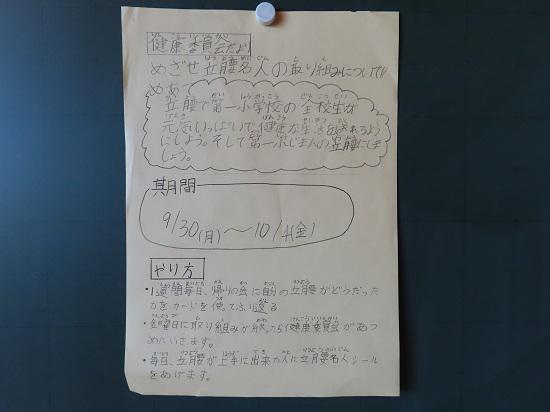 健康委員会だより
めざせ立腰名人の取り組みについて!!
めあて
立腰で第一小学校の全校生が
元気いっぱいで健康な生活を送れるよう
にしよう。そして第一小じまんの立腰にしま
しょう。
期間
9/30(月)～10/4(金)
やり方
・1週間毎日、帰りの会に自分の立腰がどうだった
かをカードを使ってふり返る
・金曜日に取り組みが終ったら健康委員会があつ
めにいきます。
・毎日、立腰が上手に出来た人に立腰名人シール
をあげます。